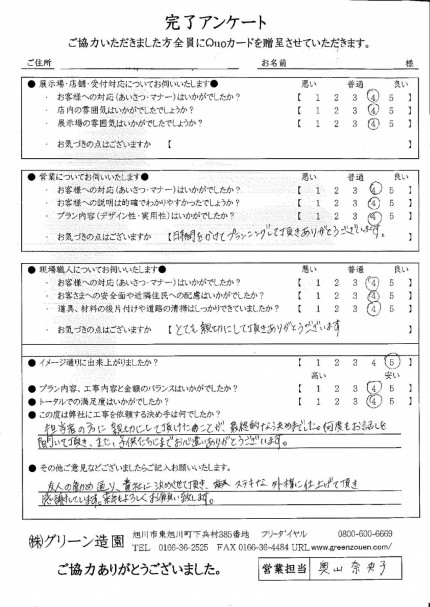 完了アンケート
ご協力いただきました方全員にQuoカードを贈呈させていただきます。
ご住所 お名前 様
● 展示場・店舗・受付対応についてお伺いいたします● 悪い 普通 良い
・ お客様への対応(あいさつ・マナー)はいかがでしたか? 【 1 2 3 4 5 】
・ 店内の雰囲気はいかがでしたでしょうか? 【 1 2 3 4 5 】
・ 展示場の雰囲気はいかがでしたでしょうか? 【 1 2 3 4 5 】
・ お気づきの点はございますか 【 】
● 営業についてお伺いいたします● 悪い 普通 良い
・ お客様への対応(あいさつ・マナー)はいかがでしたか? 【 1 2 3 4 5 】
・ お客様への説明は的確でわかりやすかったでしょうか? 【 1 2 3 4 5 】
・ プラン内容(デザイン性・実用性)はいかがでしたか? 【 1 2 3 4 5 】
・ お気づきの点はございますか 【時間をかけてプランニングして頂きありがとうございます。
● 現場職人についてお伺いいたします● 悪い 普通 良い
・ お客様への対応(あいさつ・マナー)はいかがでしたか? 【 1 2 3 4 5 】
・ お客さまへの安全面や近隣住民への配慮はいかがでしたか? 【 1 2 3 4 5 】
・ 道具、材料の後片付けや道路の清掃はしっかりできていましたか? 【 1 2 3 4 5 】
・ お気づきの点はございますか 【とても親切にして頂きありがとうございます 】
● イメージ通りに出来上がりましたか? 【 1 2 3 4 5 】
高い 安い
● プラン内容、工事内容と金額のバランスはいかがでしたか? 【 1 2 3 4 5 】
● トータルでの満足度はいかがでしたか? 【 1 2 3 4 5 】
● この度は弊社に工事を依頼する決め手は何でしたか?
担当者の方に親切にして頂けたことが、最終的な決め手でした。何度もお話しを
聞いて頂き、また、子供たちにまでお心遣いありがとうございます。
● その他ご意見などございましたらご記入お願いいたします。
友人の勧め通り、貴社に決めさせて頂き、ステキな外構に仕上げて頂き
感謝しています。今後もよろしくお願い致します。
㈱グリーン造園 旭川市東旭川町下兵村385番地 フリーダイヤル 0800-600-6669
TEL 0166-36-2525 FAX 0166-36-4484 URL www.greenzouen.com/
ご協力ありがとうございました。 営業担当 奥山 奈央子